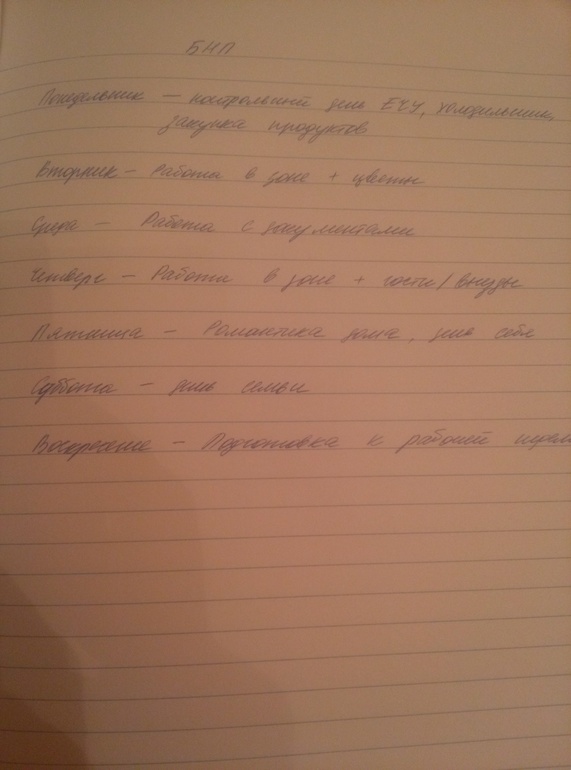 БНП
Понедельник – контрольный день ЕЧУ, холодильник,
закупка продуктов
Вторник – Работа в зоне + цветы
Среда – Работа с документами
Четверг – Работа в зоне + гости/выезды
Пятница – Романтика дома, для себя
Суббота – день семьи
Воскресение – Подготовка к рабочей